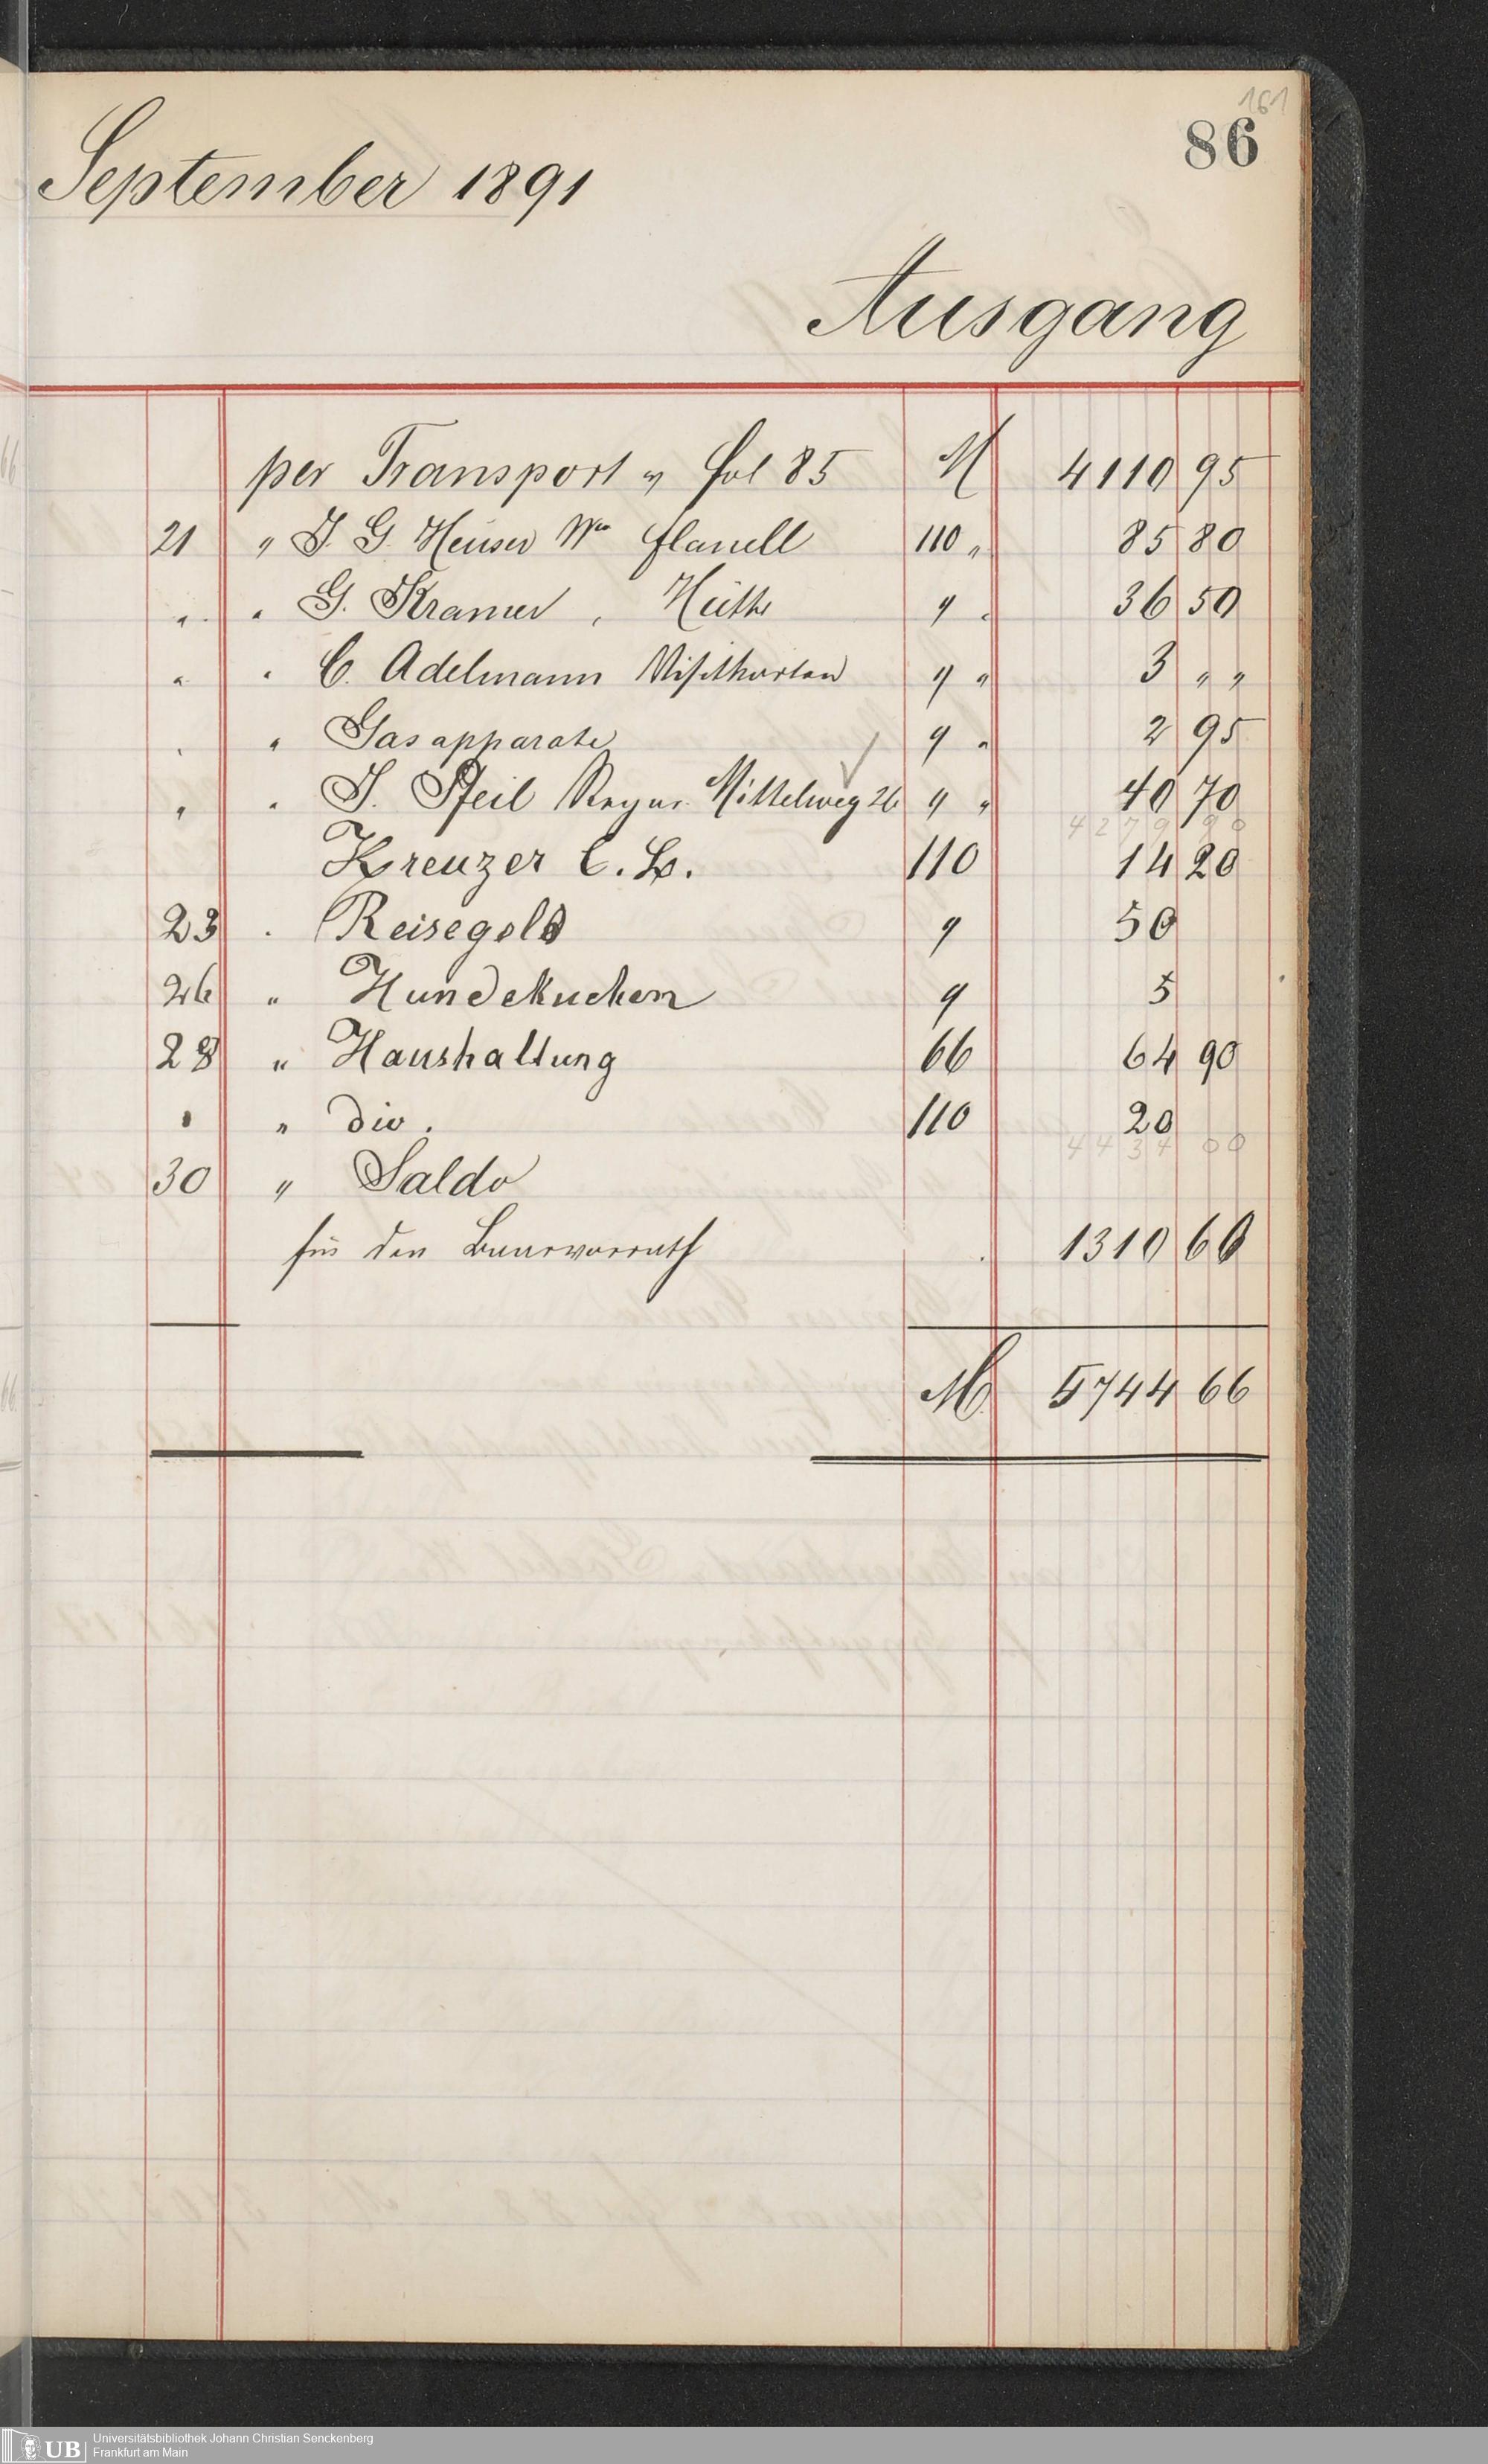 161
86
September 1891
Ausgang
per Transport v fol 85 M 4110 95
21 " J. G. Heuser Wwe flanell 110 " 85 80
" " G. Kramer , Hüthe " " 36 50
" " C. Adelmann Visitkarten " " 3 " "
" " Gasapparate " " 2 95
" " J. Pfeil Mittelweg 26 " " 40 70
4279 90
Kreuzer C. L. 110 14 20
23 " Reisegeld " 50
26 " Hundekuchen " 5
28 " Haushaltung 66 64 90
" " div. 110 20
4434 00
30 " Saldo
für den Baarvorrath 1310 66
M 5744 66
UB Universitätsbibliothek Johann Christian Senckenberg
Frankfurt am Main